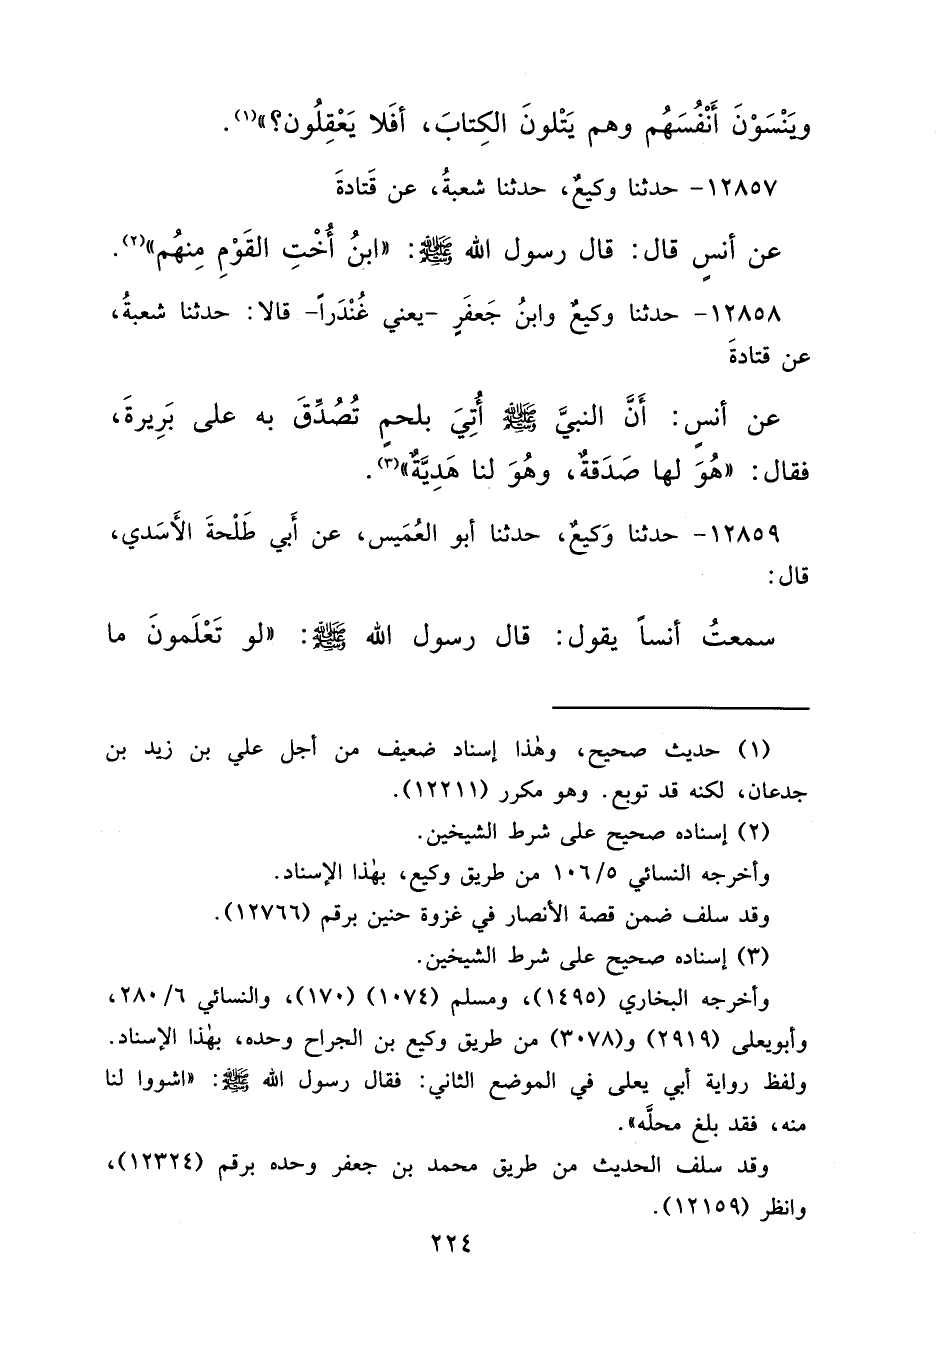 ويَنْسَوْنَ أَنْفُسَهُم وهم يَتْلونَ الكِتابَ، أفَلا يَعْقِلُون؟»(١).
١٢٨٥٧- حدثنا وكيعٌ، حدثنا شعبةُ، عن قَتادةَ
عن أنسٍ قال: قال رسول الله ﷺ: «ابنُ أُخْتِ القَوْمِ مِنهُم»(٢).
١٢٨٥٨- حدثنا وكيعٌ وابنُ جَعفَرٍ -يعني غُنْدَراً- قالا: حدثنا شعبةُ،
عن قتادةَ
عن أنسٍ: أَنَّ النبيَّ ﷺ أُتِيَ بلحمٍ تُصُدِّقَ به على بَرِيرةَ،
فقال: «هُوَ لها صَدَقةٌ، وهُوَ لنا هَدِيَّةٌ»(٣).
١٢٨٥٩- حدثنا وَكيعٌ، حدثنا أبو العُمَيس، عن أَبي طَلْحةَ الأَسَدي،
قال:
سمعتُ أنساً يقول: قال رسول الله ﷺ: «لو تَعْلَمونَ ما
(١) حديث صحيح، وهٰذا إسناد ضعيف من أجل علي بن زيد بن
جدعان، لكنه قد توبع. وهو مكرر (١٢٢١١).
(٢) إسناده صحيح على شرط الشيخين.
وأخرجه النسائي ١٠٦/٥ من طريق وكيع، بهٰذا الإسناد.
وقد سلف ضمن قصة الأنصار في غزوة حنين برقم (١٢٧٦٦).
(٣) إسناده صحيح على شرط الشيخين.
وأخرجه البخاري (١٤٩٥)، ومسلم (١٠٧٤) (١٧٠)، والنسائي ٢٨٠/٦،
وأبويعلى (٢٩١٩) و(٣٠٧٨) من طريق وكيع بن الجراح وحده، بهٰذا الإسناد.
ولفظ رواية أبي يعلى في الموضع الثاني: فقال رسول الله ﷺ: «اشووا لنا
منه، فقد بلغ محلَّه».
وقد سلف الحديث من طريق محمد بن جعفر وحده برقم (١٢٣٢٤)،
وانظر (١٢١٥٩).
٢٢٤